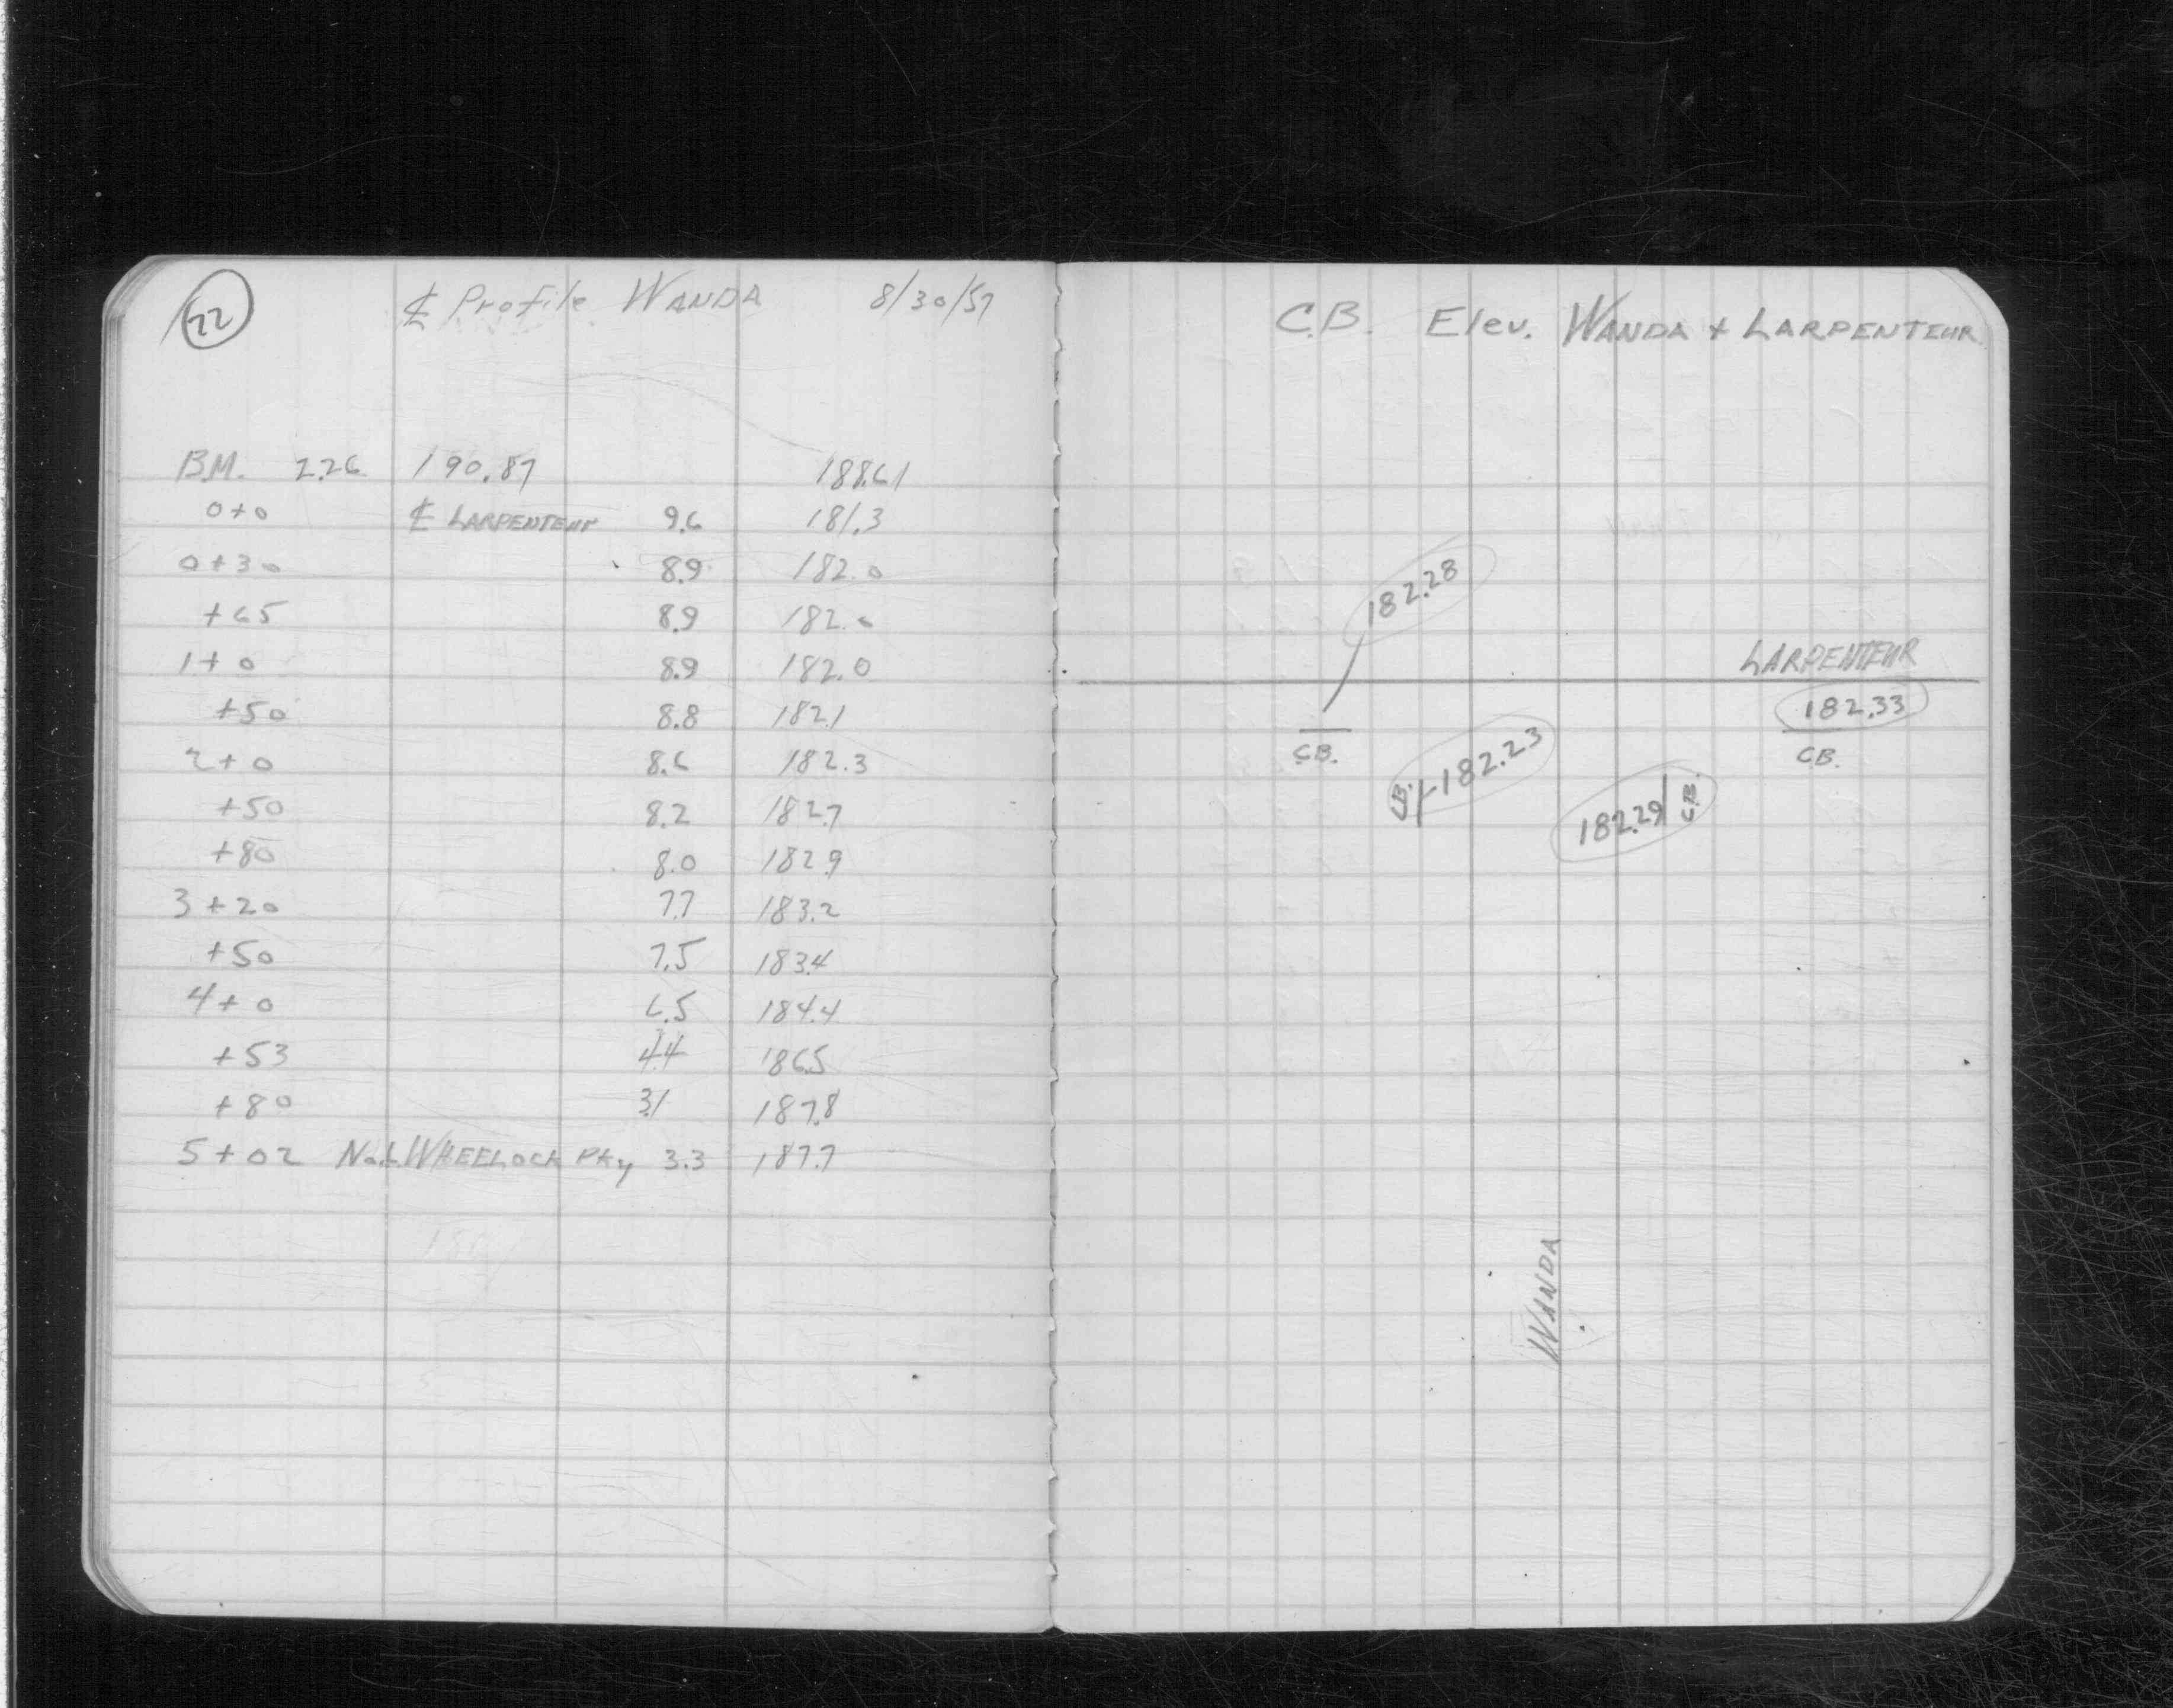 22
℄ Profile WANDA 8/30/57
B.M. 2.26 190.87 188.61
0+0 ℄ LARPENTEUR 9.6 181.3
0+30 8.9 182.0
+65 8.9 182.0
1+0 8.9 182.0
+50 8.8 182.1
2+0 8.6 182.3
+50 8.2 182.7
+80 8.0 182.9
3+20 7.7 183.2
+50 7.5 183.4
4+0 6.5 184.4
+53 4.4 186.5
+80 3.1 187.8
5+02 N.L. WHEELOCK PKy 3.3 187.7
C.B. Elev. WANDA + LARPENTEUR
182.28
LARPENTEUR
182.33
C.B.
CB.
C.B. 182.23
182.29 C.B.
WANDA